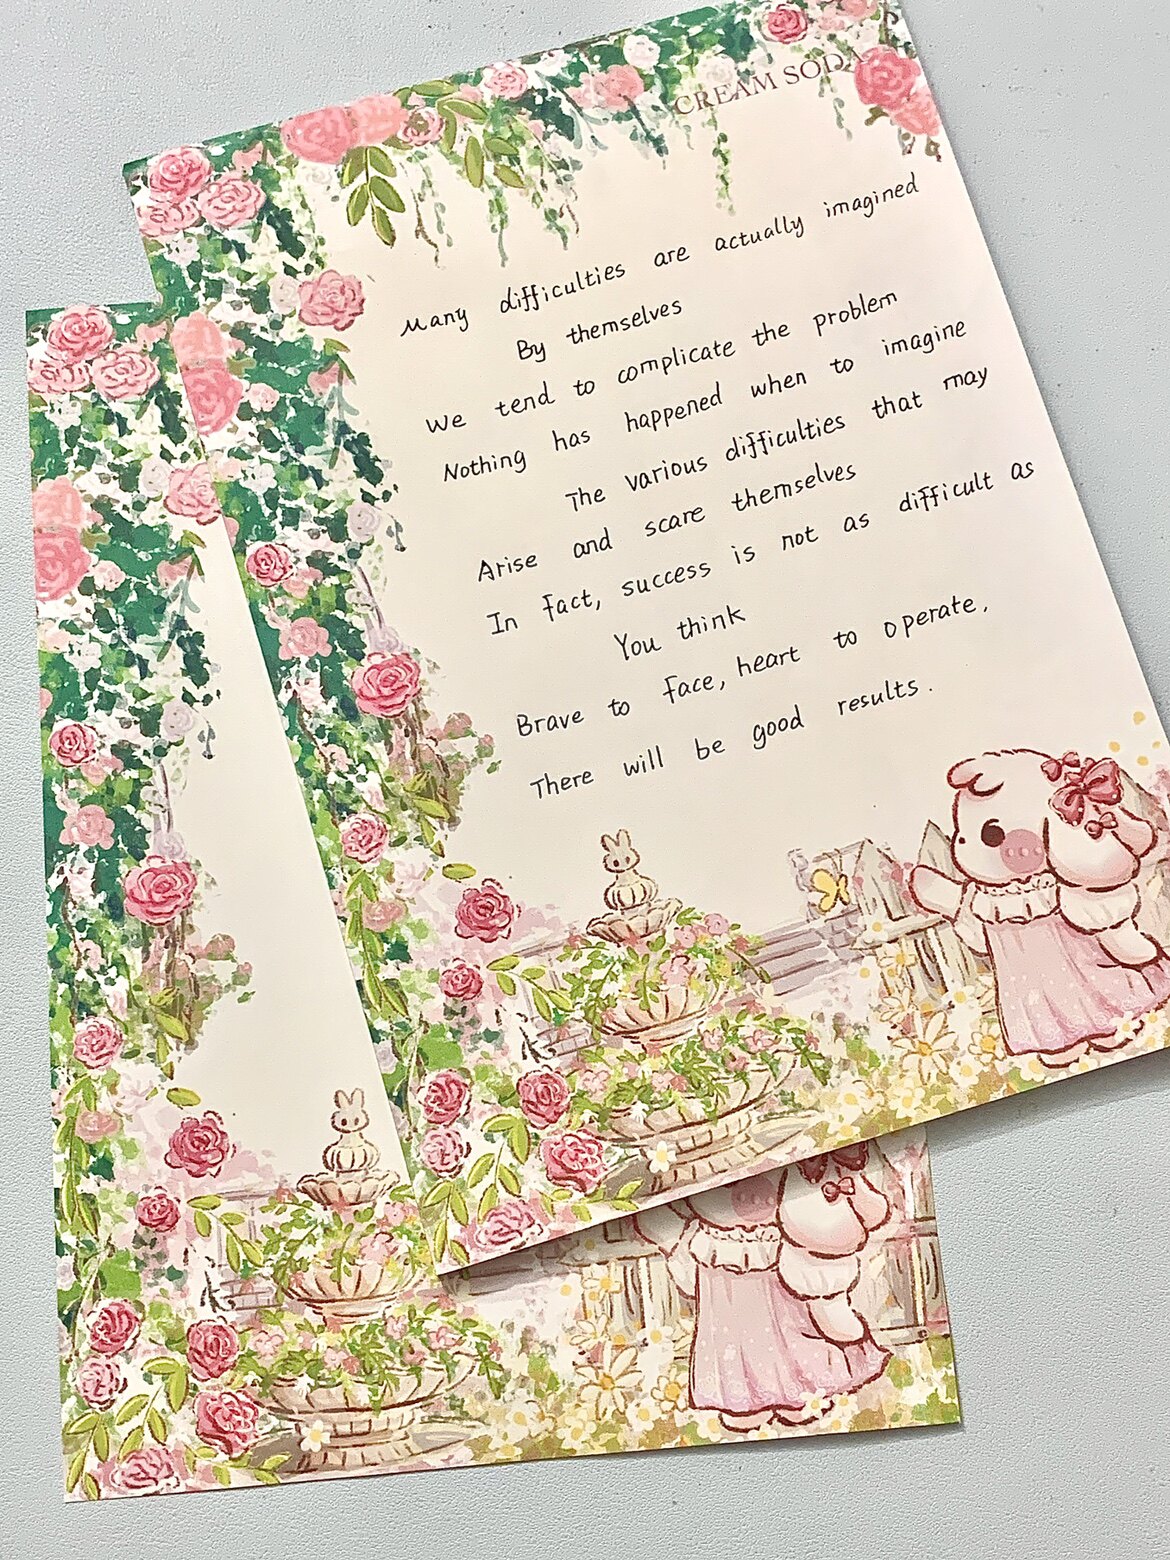 CREAM SODA
Many difficulties are actually imagined
By themselves
We tend to complicate the problem
Nothing has happened when to imagine
The various difficulties that may
Arise and scare themselves
In fact, success is not as difficult as
You think
Brave to face, heart to operate,
There will be good results.